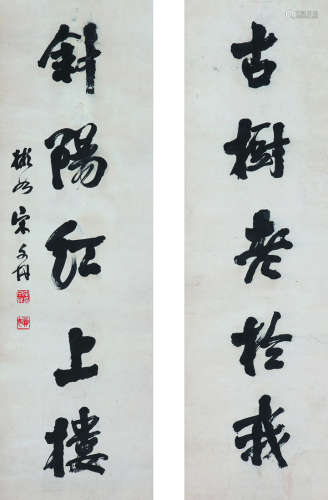 古樹老於我
斜陽紅上樓
宋文丹